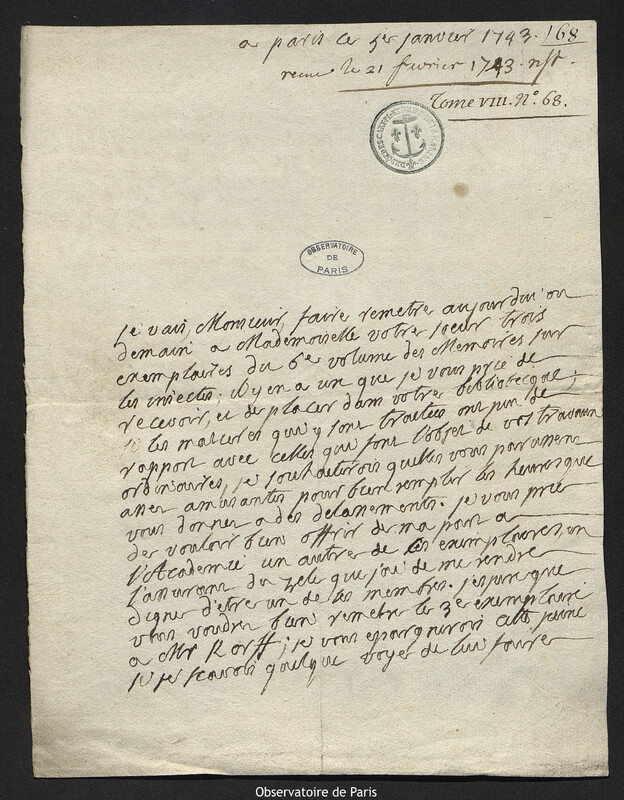 a paris ce 5er janvier 1743. 168
receue le 21 fevrier 1743. nst.
Tome VIII. N.° 68.
OBSERVATOIRE
DE
PARIS
je vais, Monsieur, faire remetre aujourdui ou
demain a Mademoiselle votre soeur trois
exemplaires du 6e volume des Memoires sur
les insectes; il y en a un que je vous prie de
recevoir, et de placer dans votre bibliotecque;
si les matieres qui y sont traitées ont peu de
rapport avec celles qui font l'objet de vos travaux
ordinaires, je souhaiterois quelles vous parussent
assez amusantes pour bien remplir les heures que
vous donnez a des delassements. je vous prie
de vouloir bien offrir de ma part a
l'Academie un autre de ces exemplaires, en
l'assurant du zele que j'ai de me rendre
digne d'etre un de ses membres. j'espere que
vous voudrez bien remetre le 3e exemplaire
a Mr Korff; je vous epargnerois cette peine
si je scavois quelque voye de lui faire
Observatoire de Paris